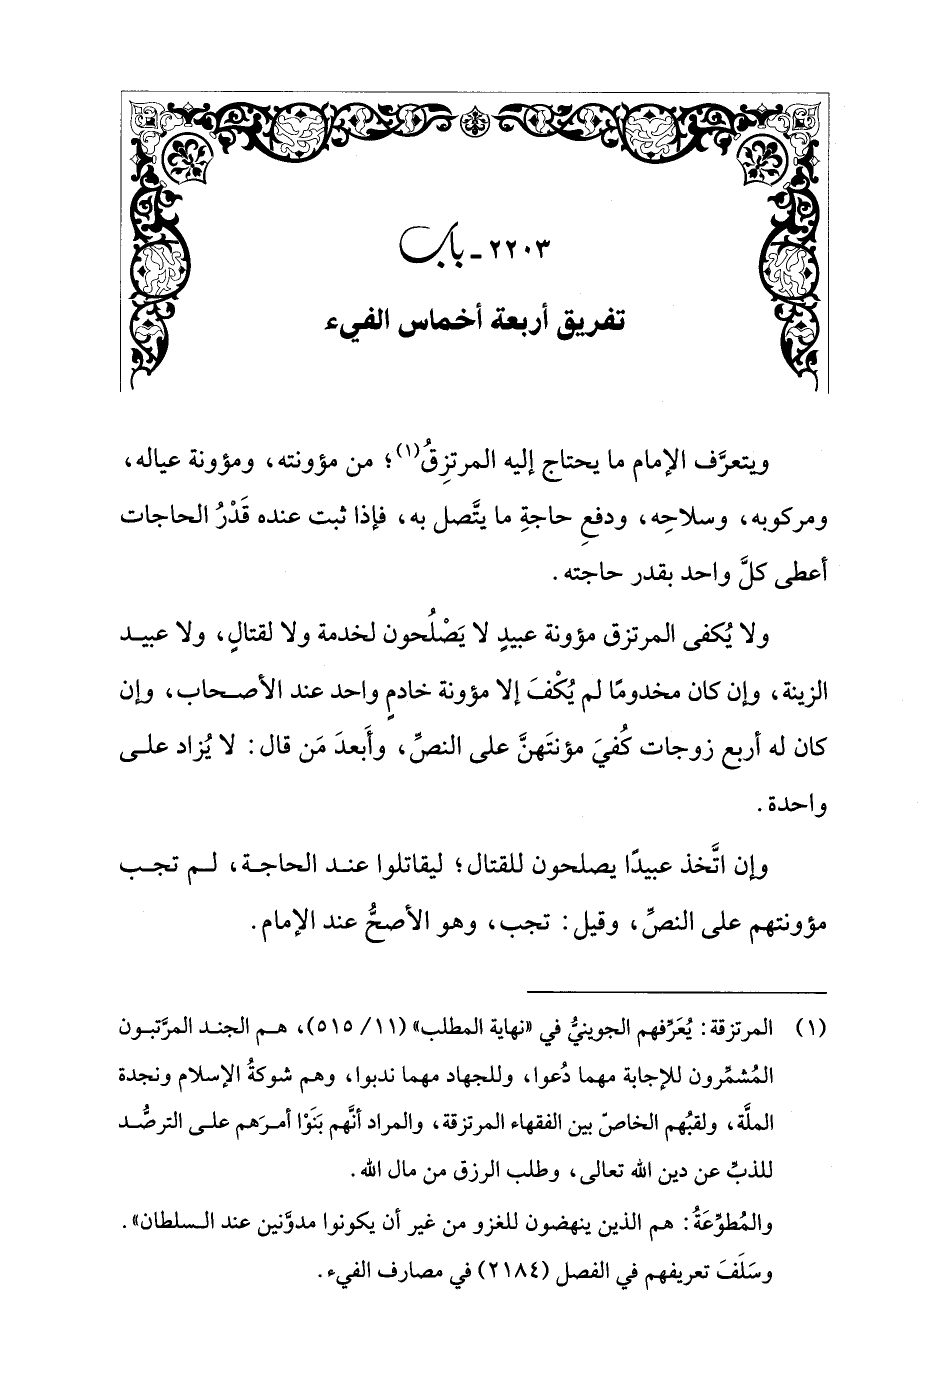 ٢٢٠٣ - باب
تفريق أربعة أخماس الفيء
ويتعرَّف الإمام ما يحتاج إليه المرتزِقُ(١)؛ من مؤونته، ومؤونة عياله،
ومركوبه، وسلاحِه، ودفعِ حاجةِ ما يتَّصل به، فإذا ثبت عنده قَدْرُ الحاجات
أعطى كلَّ واحد بقدر حاجته.
ولا يُكفى المرتزق مؤونة عبيدٍ لا يَصْلُحون لخدمة ولا لقتالٍ، ولا عبيد
الزينة، وإن كان مخدومًا لم يُكْفَ إلا مؤونة خادمٍ واحد عند الأصحاب، وإن
كان له أربع زوجات كُفيَ مؤنتَهنَّ على النصِّ، وأَبعدَ مَن قال: لا يُزاد على
واحدة.
وإن اتَّخذ عبيدًا يصلحون للقتال؛ ليقاتلوا عند الحاجة، لم تجب
مؤونتهم على النصِّ، وقيل: تجب، وهو الأصحُّ عند الإمام.
(١) المرتزقة: يُعَرِّفهم الجوينيُّ في «نهاية المطلب» (١١/ ٥١٥)، هم الجند المرَّتبون
المُشمِّرون للإجابة مهما دُعوا، وللجهاد مهما ندبوا، وهم شوكةُ الإسلام ونجدة
الملَّة، ولقبُهم الخاصّ بين الفقهاء المرتزقة، والمراد أنَّهم بَنَوْا أمرَهم على الترصُّد
للذبِّ عن دين الله تعالى، وطلب الرزق من مال الله.
والمُطوِّعَةُ: هم الذين ينهضون للغزو من غير أن يكونوا مدوَّنين عند السلطان».
وسَلَفَ تعريفهم في الفصل (٢١٨٤) في مصارف الفيء.